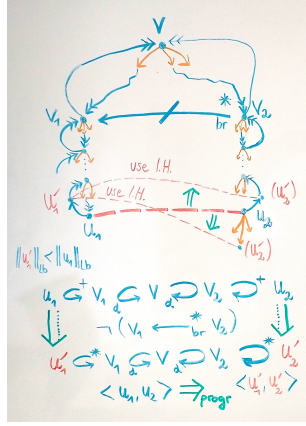 V
V₁ * br V₂
use I.H.
u₁' use I.H. (u₂')
u₁ u₂
(u₂')
‖u₁'‖lb < ‖u₁‖lb
u₁ ↷⁺ V₁ d↶ V d↷ V₂ ↷⁺ u₂
¬ (V₁ ⟵* br V₂)
u₁' ↷* V₁ d↶ V d↷ V₂ ↷* u₂'
< u₁, u₂ > ⇒ progr < u₁', u₂' >